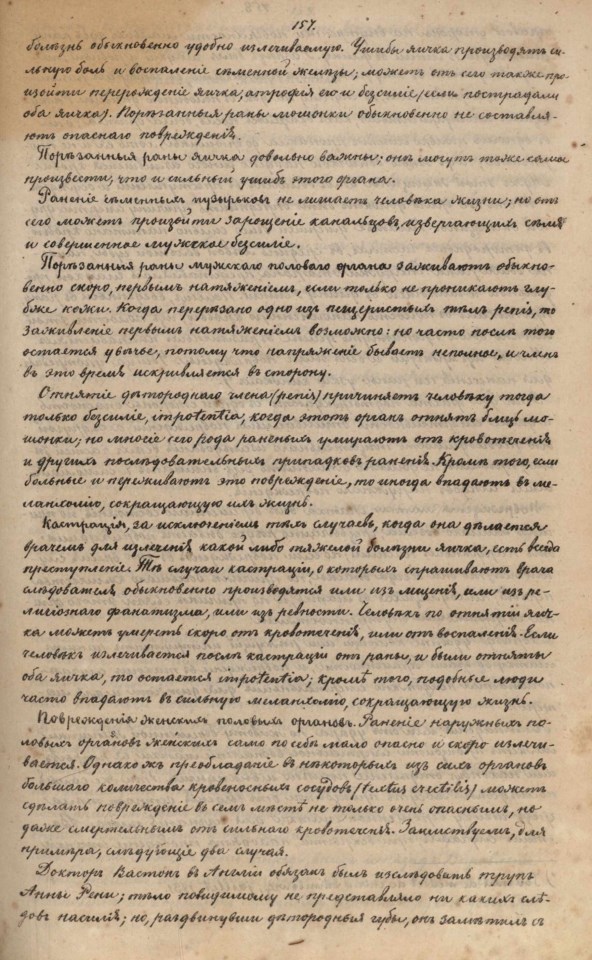 157.
болѣзнь обыкновенно удобно излечиваемую. Ушибы яичка производятъ си-
льную боль и воспаленіе сѣменной железы; можетъ отъ сего также про-
изойти перерожденіе яичка, атрофія его и безсиліе (если пострадали
оба яичка). Порѣзанныя раны мошонки обыкновенно не составля-
ютъ опаснаго поврежденія.
Порѣзанныя раны яичка довольно важны; онѣ могутъ тоже самое
произвести, что и сильный ушибъ этого органа.
Раненіе сѣменныхъ пузырьковъ не лишаетъ человѣка жизни; но отъ
сего можетъ произойти зарощеніе канальцовъ, извергающихъ сѣмя
и совершенное мужское безсиліе.
Порѣзанныя раны мужскаго половаго органа заживаютъ обыкно-
венно скоро, первымъ натяженіемъ, если только не проникаютъ глу-
бже кожи. Когда перерѣзано одно изъ пещеристыхъ тѣлъ penis, то
заживленіе первымъ натяженіемъ возможно: но часто послѣ того
остается увѣчье, потому что напряженіе бываетъ неполное, и членъ
въ это время искривляется въ сторону.
Отнятіе дѣтороднаго члена (penis) причиняетъ человѣку тогда
только безсиліе, impotentia, когда этотъ органъ отнятъ близь мо-
шонки; но многіе сего рода раненыхъ умираютъ отъ кровотеченія
и другихъ послѣдовательныхъ припадковъ раненія. Кромѣ того, если
больные и переживаютъ это поврежденіе, то иногда впадаютъ въ ме-
ланхолію, сокращающую ихъ жизнь.
Кастрація, за исключеніемъ тѣхъ случаевъ, когда она дѣлается
врачемъ для излеченія какой либо тяжелой болѣзни яичка, есть всегда
преступленіе. Тѣ случаи кастраціи, о которыхъ спрашиваютъ врача
слѣдователя, обыкновенно производятся или изъ мщенія, или изъ ре-
лигіознаго фанатизма, или изъ ревности. Человѣкъ по отнятіи яич-
ка можетъ умереть скоро отъ кровотеченія, или отъ воспаленія. Если
человѣкъ излечивается послѣ кастраціи отъ раны, и были отняты
оба яичка, то остается impotentia; кромѣ того, подобные люди
часто впадаютъ въ сильную меланхолію, сокращающую жизнь.
Поврежденія женскихъ половыхъ органовъ. Раненіе наружныхъ по-
ловыхъ органовъ женскихъ само по себѣ мало опасно и скоро излечи-
вается. Однакожъ преобладаніе въ нѣкоторыхъ изъ сихъ органовъ
большаго количества кровеносныхъ сосудовъ (textus erectilis) можетъ
сдѣлать поврежденіе въ семъ мѣстѣ не только очень опаснымъ, но
даже смертельнымъ отъ сильнаго кровотеченія. Заимствуемъ, для
примѣра, слѣдующіе два случая.
Докторъ Вастонъ въ Англіи обязанъ былъ изслѣдовать трупъ
Анны Рени; тѣло повидимому не представляло ни какихъ слѣ-
довъ насилія; но, раздвинувши дѣтородныя губы, онъ замѣтилъ съ